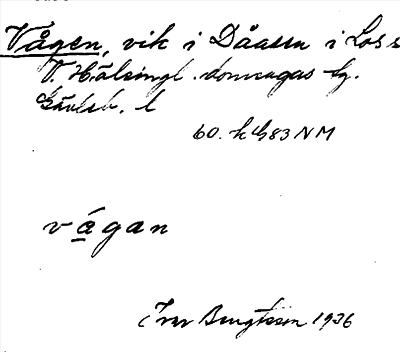 Vågen, vik i Dåasen i Los s
V. Hälsingl. domsagas tg.
Gävleb. l
60. h G83 NM
vågan
Ivar Bengtsson 1936